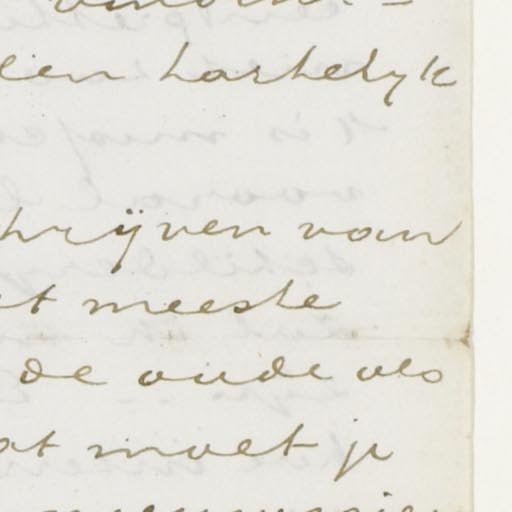 len hartelyk
hrijven van
et meeste
de oude als
at moet je